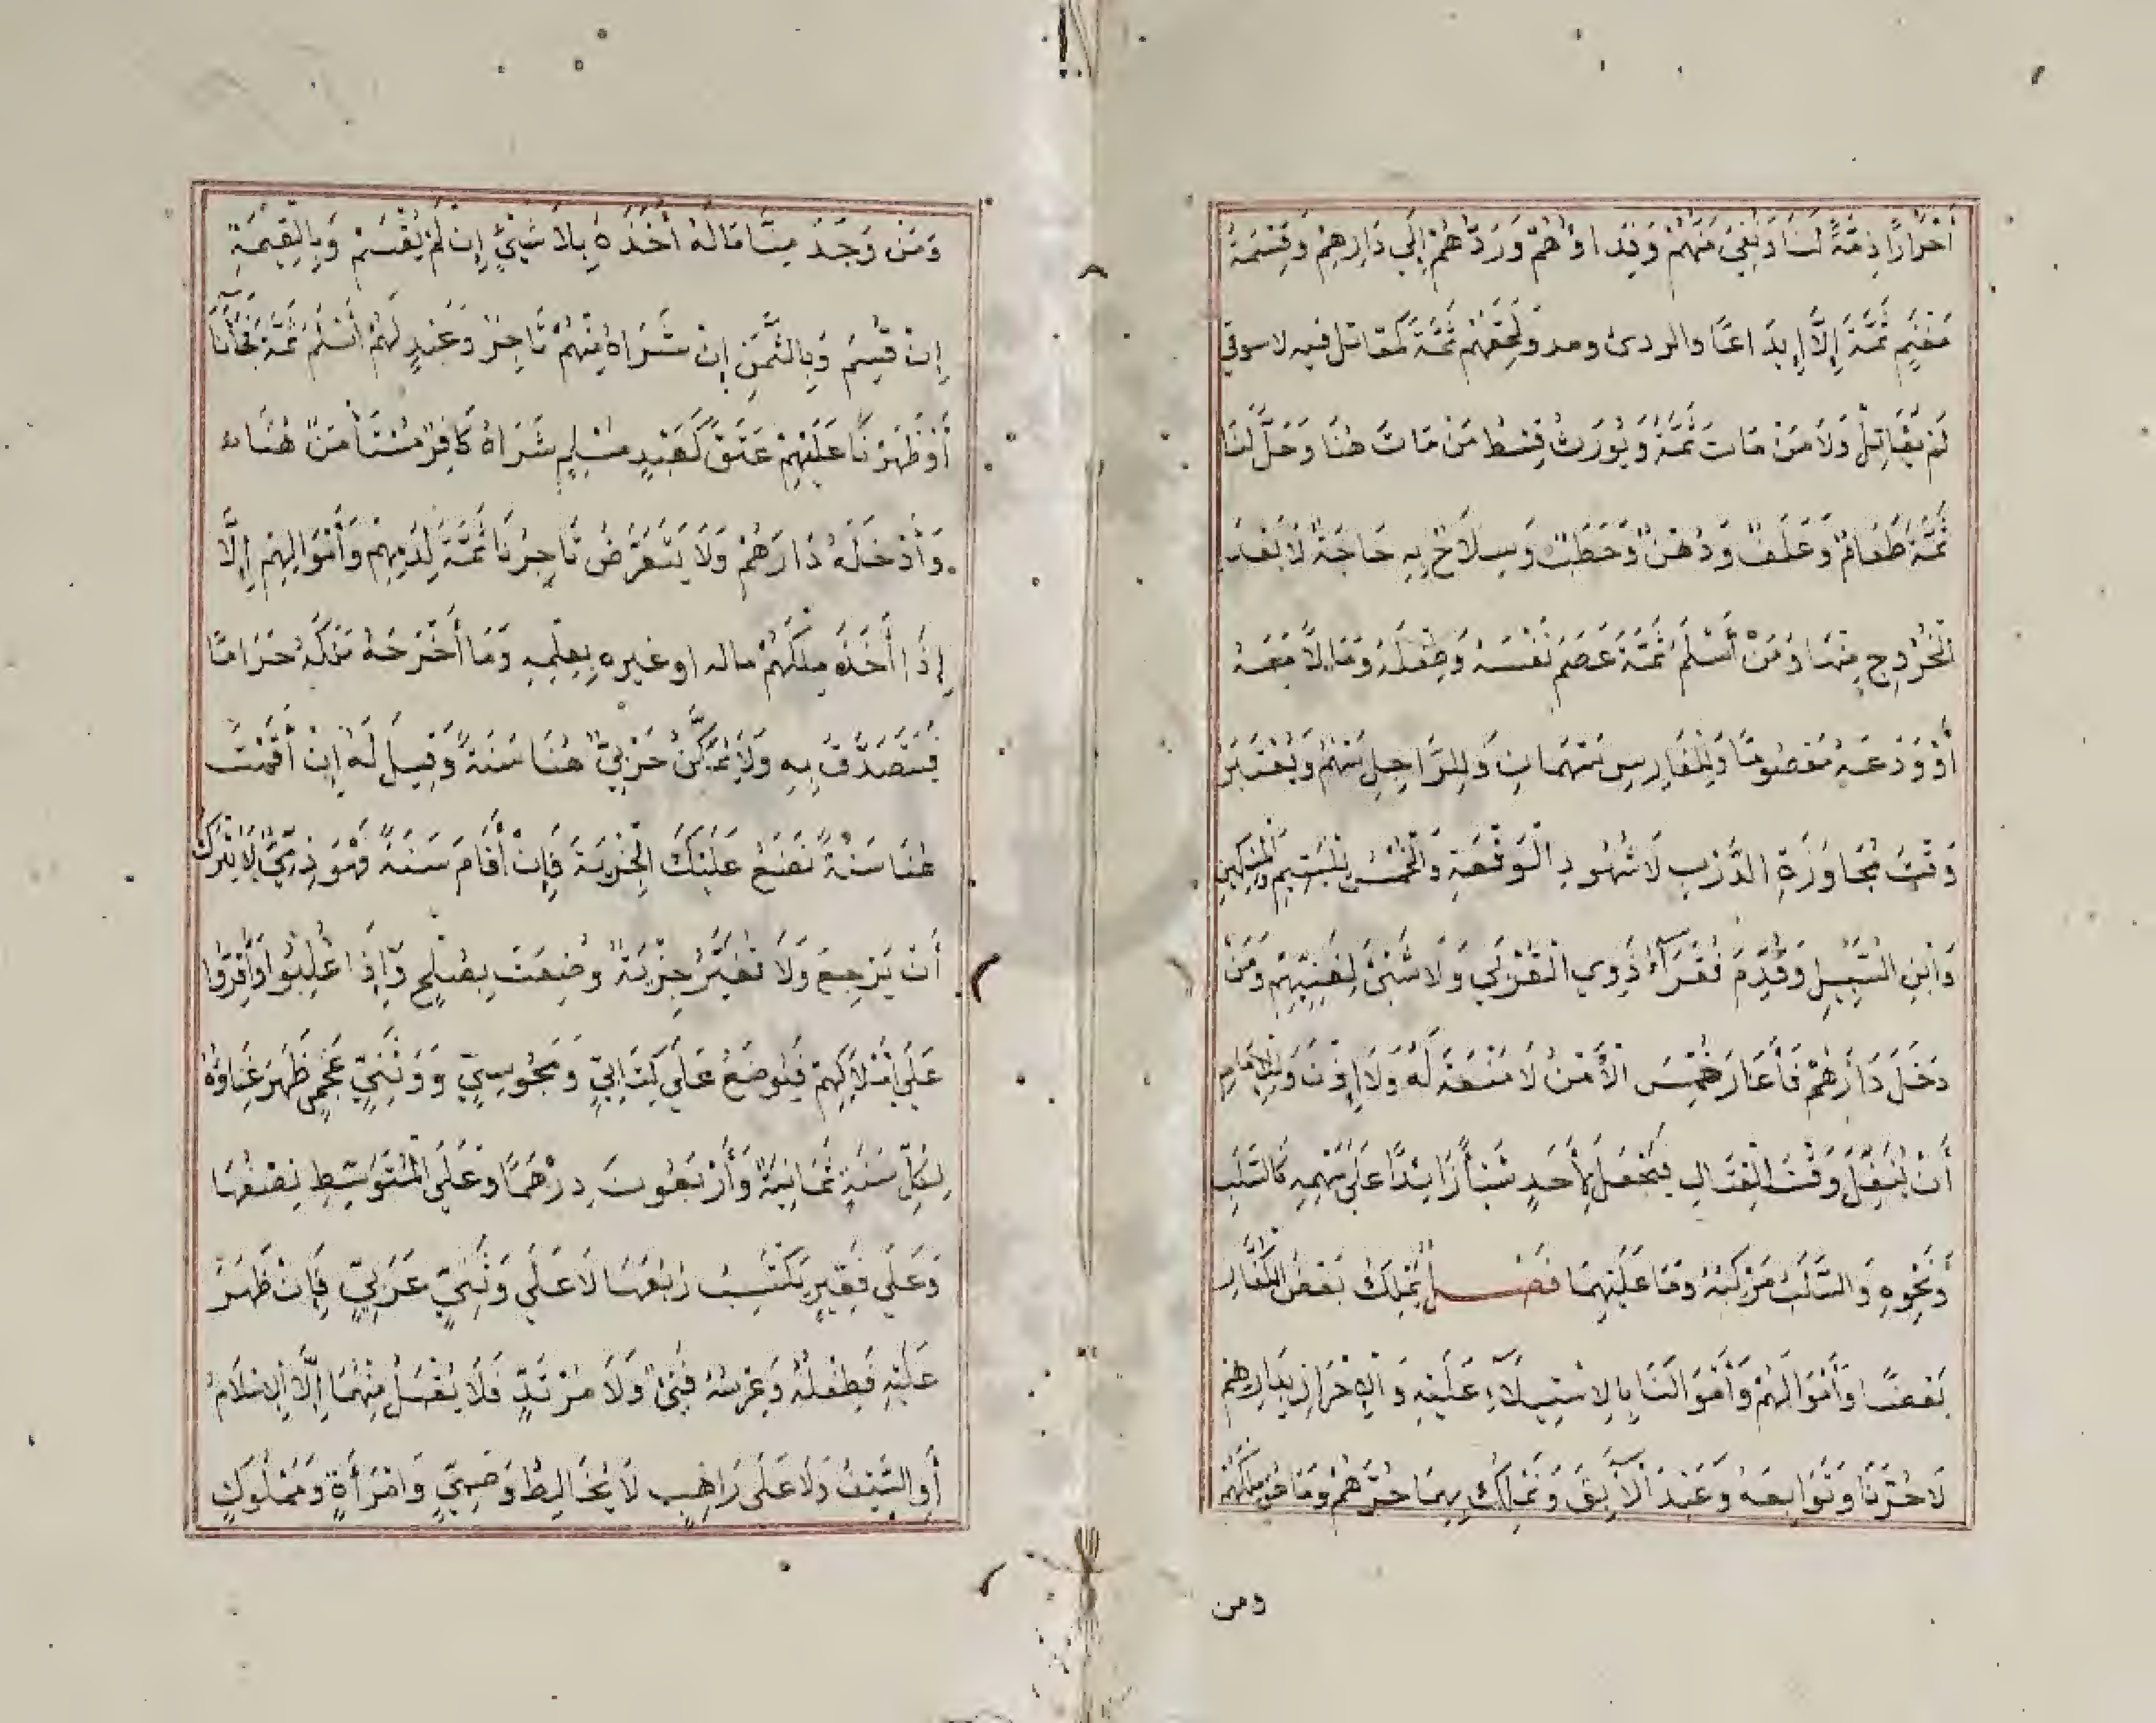 أَحْرَارًا ذِمَّةً لَنَا وَنُفِيَ مَنُّهُمْ وَفِدَاؤُهُمْ وَرَدُّهُمْ إِلَى دَارِهِمْ وَقِسْمَةُ
مَغْنَمٍ ثَمَّةَ إِلَّا إِيدَاعًا والردئ ومدد لَحِقَهُمْ ثَمَّةَ كَمُقاتل فيه لا سوقي
لَمْ يُقَاتِلْ وَلَا مَنْ مَاتَ ثَمَّةَ وَيُورَثُ قِسْطُ مَنْ مَاتَ هُنَا وَحَلَّ لَنَا
ثَمَّةَ طَعَامٌ وَعَلَفٌ وَدُهْنٌ وَحَطَبٌ وَسِلَاحٌ بِهِ حَاجَةٌ لَا بَعْدَ
الْخُرُوجِ مِنْهَا وَمَنْ أَسْلَمَ ثَمَّةَ عَصَمَ نَفْسَهُ وَطِفْلَهُ وَمَالًا مَعَهُ
أَوْ وَدَعَهُ مَعْصُومًا وَلِلْفَارِسِ سَهْمَانِ وَلِلرَّاجِلِ سَهْمٌ وَيُعْتَبَرُ
وَقْتُ مُجَاوَزَةِ الدَّرْبِ لَا شُهُودِ الْوَقْعَةِ وَالْخُمُسُ لِلْيَتِيمِ وَالْمِسْكِينِ
وَابْنِ السَّبِيلِ وَقُدِّمَ فُقَرَآءُ ذَوِي الْقُرْبَى وَلَا شَيْئَ لِغَنِيِّهِمْ وَمَنْ
دَخَلَ دَارَهُمْ فَأَغَارَ خُمِّسَ الْأَمَنْ لَا مَنْعَةَ لَهُ وَلَا إِذْنَ وَلِلْإِمَامِ
أَنْ يُنَفِّلَ وَقْتَ الْقِتَالِ فَيَجْعَلَ لِأَحَدٍ شَيْأً زَائِدًا عَلَى سَهْمِهِ كَالسَّلَبِ
وَنَحْوِهِ وَالسَّلَبُ مَرْكَبُهُ وَمَا عَلَيْهِمَا فَصْل يَمْلِكُ بَعْضُ الْكُفَّارِ
بَعْضًا وَأَمْوَالَهُمْ وَأَمْوَالَنَا بِالِاسْتِيلَآءِ عَلَيْهِ وَالْإِحْرَازِ بِدَارِهِمْ
لَا حُرَّنَا وَتَوَابِعَهُ وَعَبْدَنَا الْآبِقَ وَنَمْلِكُ بِهِمَا حُرَّهُمْ وَمَا هُوَ مِلْكُهُمْ
ومن
وَمَنْ وَجَدَ مِنَّا مَالَهُ أَخَذَهُ بِلَا شَيْئٍ إِنْ لَمْ يُقْسَمْ وَبِالْقِيمَةِ
إِنْ قُسِمَ وَبِالثَّمَنِ إِنْ شَرَاهُ مِنْهُمْ تَاجِرٌ وَعَبْدٍ لَهُمْ أَسْلَمَ ثَمَّةَ فَجَآءَنَا
أَوْ ظَهَرْنَا عَلَيْهِمْ عَتَقَ كَعَبْدٍ مُسْلِمٍ شَرَاهُ كَافِرٌ مُسْتَأْمَنٌ هُنَا
وَأَدْخَلَهُ دَارَهُمْ وَلَا يَتَعَرَّضُ تَاجِرُنَا ثَمَّةَ لِدَمِهِمْ وَأَمْوَالِهِمْ إِلَّا
إِذَا أَخَذَ مِلكُهُمْ ماله او غيره بِعِلْمِهِ وَمَا أَخْرَجَهُ مَلَكَهُ حَرَامًا
فَيَتَصَدَّقُ بِهِ وَلَا يُمَكَّنُ حَرْبِيٌّ هُنَا سَنَةً وَقِيلَ لَهُ إِنْ أَقَمْتَ
هُنَا سَنَةً نَضَعُ عَلَيْكَ الْجِزْيَةَ فَإِنْ أَقَامَ سَنَةً فَهُوَ ذِمِّيٌّ لَا يُتْرَكُ
أَنْ يَرْجِعَ وَلَا تُغَيَّرُ جِزْيَةٌ وُضِعَتْ بِصُلْحٍ وَإِذَا غُلِبُوا وَأُقِرُّوا
عَلَى أَمْلَاكِهِمْ فَيُوضَعُ عَلَى كِتَابِيٍّ وَمَجُوسِيٍّ وَوَثَنِيٍّ عَجَمِيٍّ ظَهَرَ غِنَاؤُهُ
لِكُلِّ سَنَةٍ ثَمَانِيَةٌ وَأَرْبَعُونَ دِرْهَمًا وَعَلَى الْمُتَوَسِّطِ نِصْفُهَا
وَعَلَى فَقِيرٍ يَكْتَسِبُ رُبْعُهَا لَا عَلَى وَثَنِيٍّ عَرَبِيٍّ فَإِنْ ظَهَرَ
عَلَيْهِ فَطِفْلُهُ وَعِرْسُهُ فَيْئٌ وَلَا مُرْتَدٍّ فَلَا يُقْبَلُ مِنْهُمَا إِلَّا الْإِسْلَامُ
أَوِ السَّيْفُ وَلَا عَلَى رَاهِبٍ لَا يُخَالِطُ وَصَبِيٍّ وَامْرَأَةٍ وَمَمْلُوكٍ